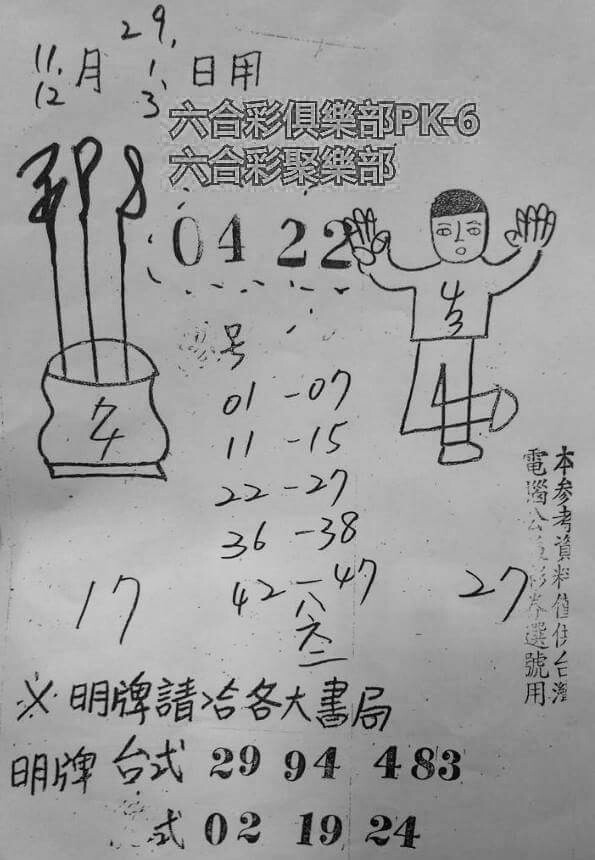 29,
11. 月 1、 日用
12 3、
六合彩俱樂部PK-6
六合彩聚樂部
04 22
号
01 - 07
11 - 15
22 - 27
36 - 38
42 - 47
17
27
六
二
本参考資料僅供台灣
電腦公益彩券選號用
※ 明牌請洽各大書局
明牌 台式 29 94 483
式 02 19 24